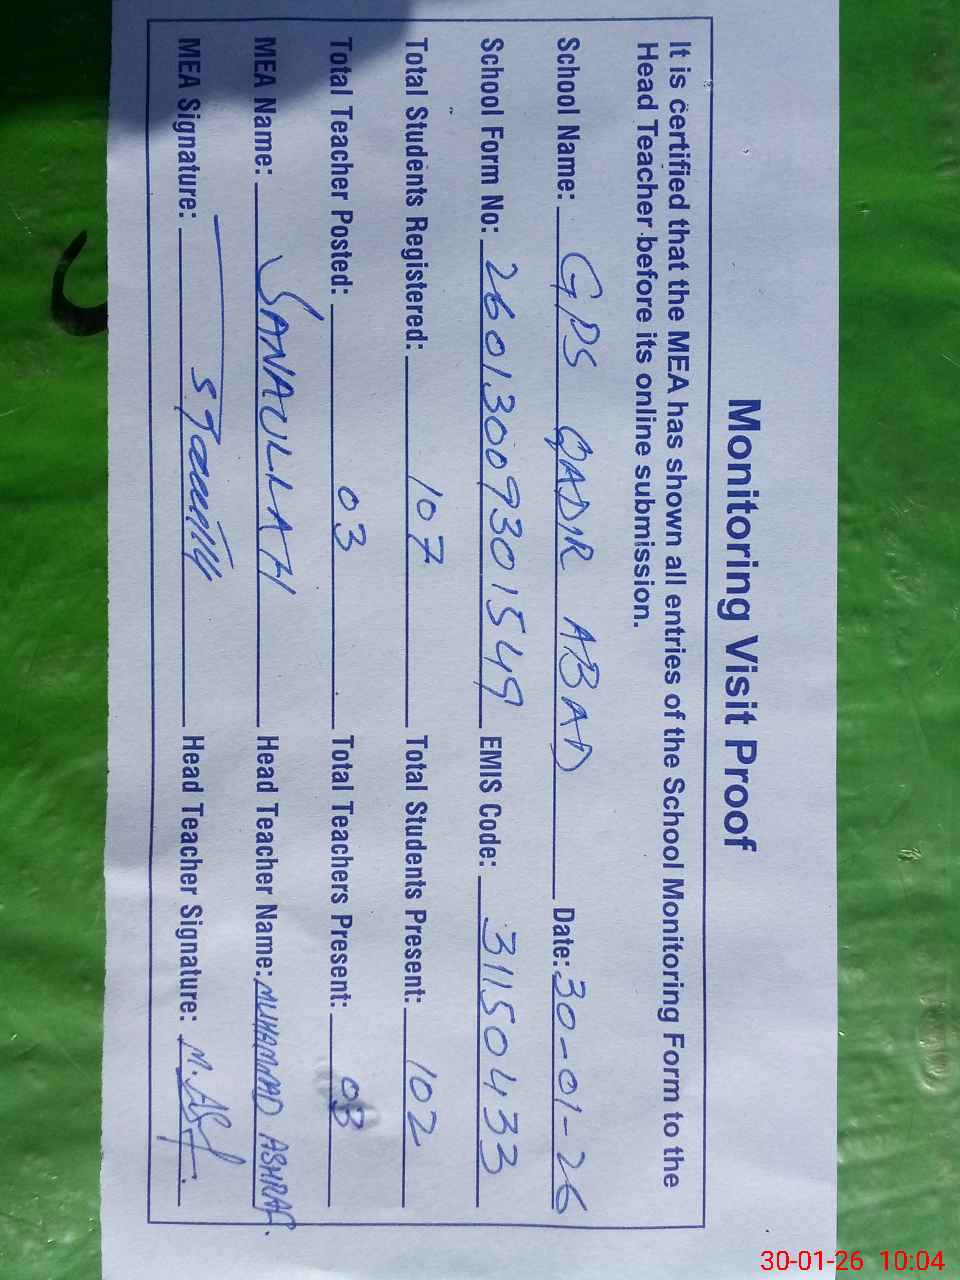 Monitoring Visit Proof
It is certified that the MEA has shown all entries of the School Monitoring Form to the
Head Teacher before its online submission.
School Name: GPS QADIR ABAD Date: 30-01-26
School Form No: 26013009301549 EMIS Code: 31150433
Total Students Registered: 107 Total Students Present: 102
Total Teacher Posted: 03 Total Teachers Present: 03
MEA Name: SANAULLAH Head Teacher Name: MUHAMMAD ASHRAF.
MEA Signature: Head Teacher Signature: M. Ashf.
30-01-26 10:04